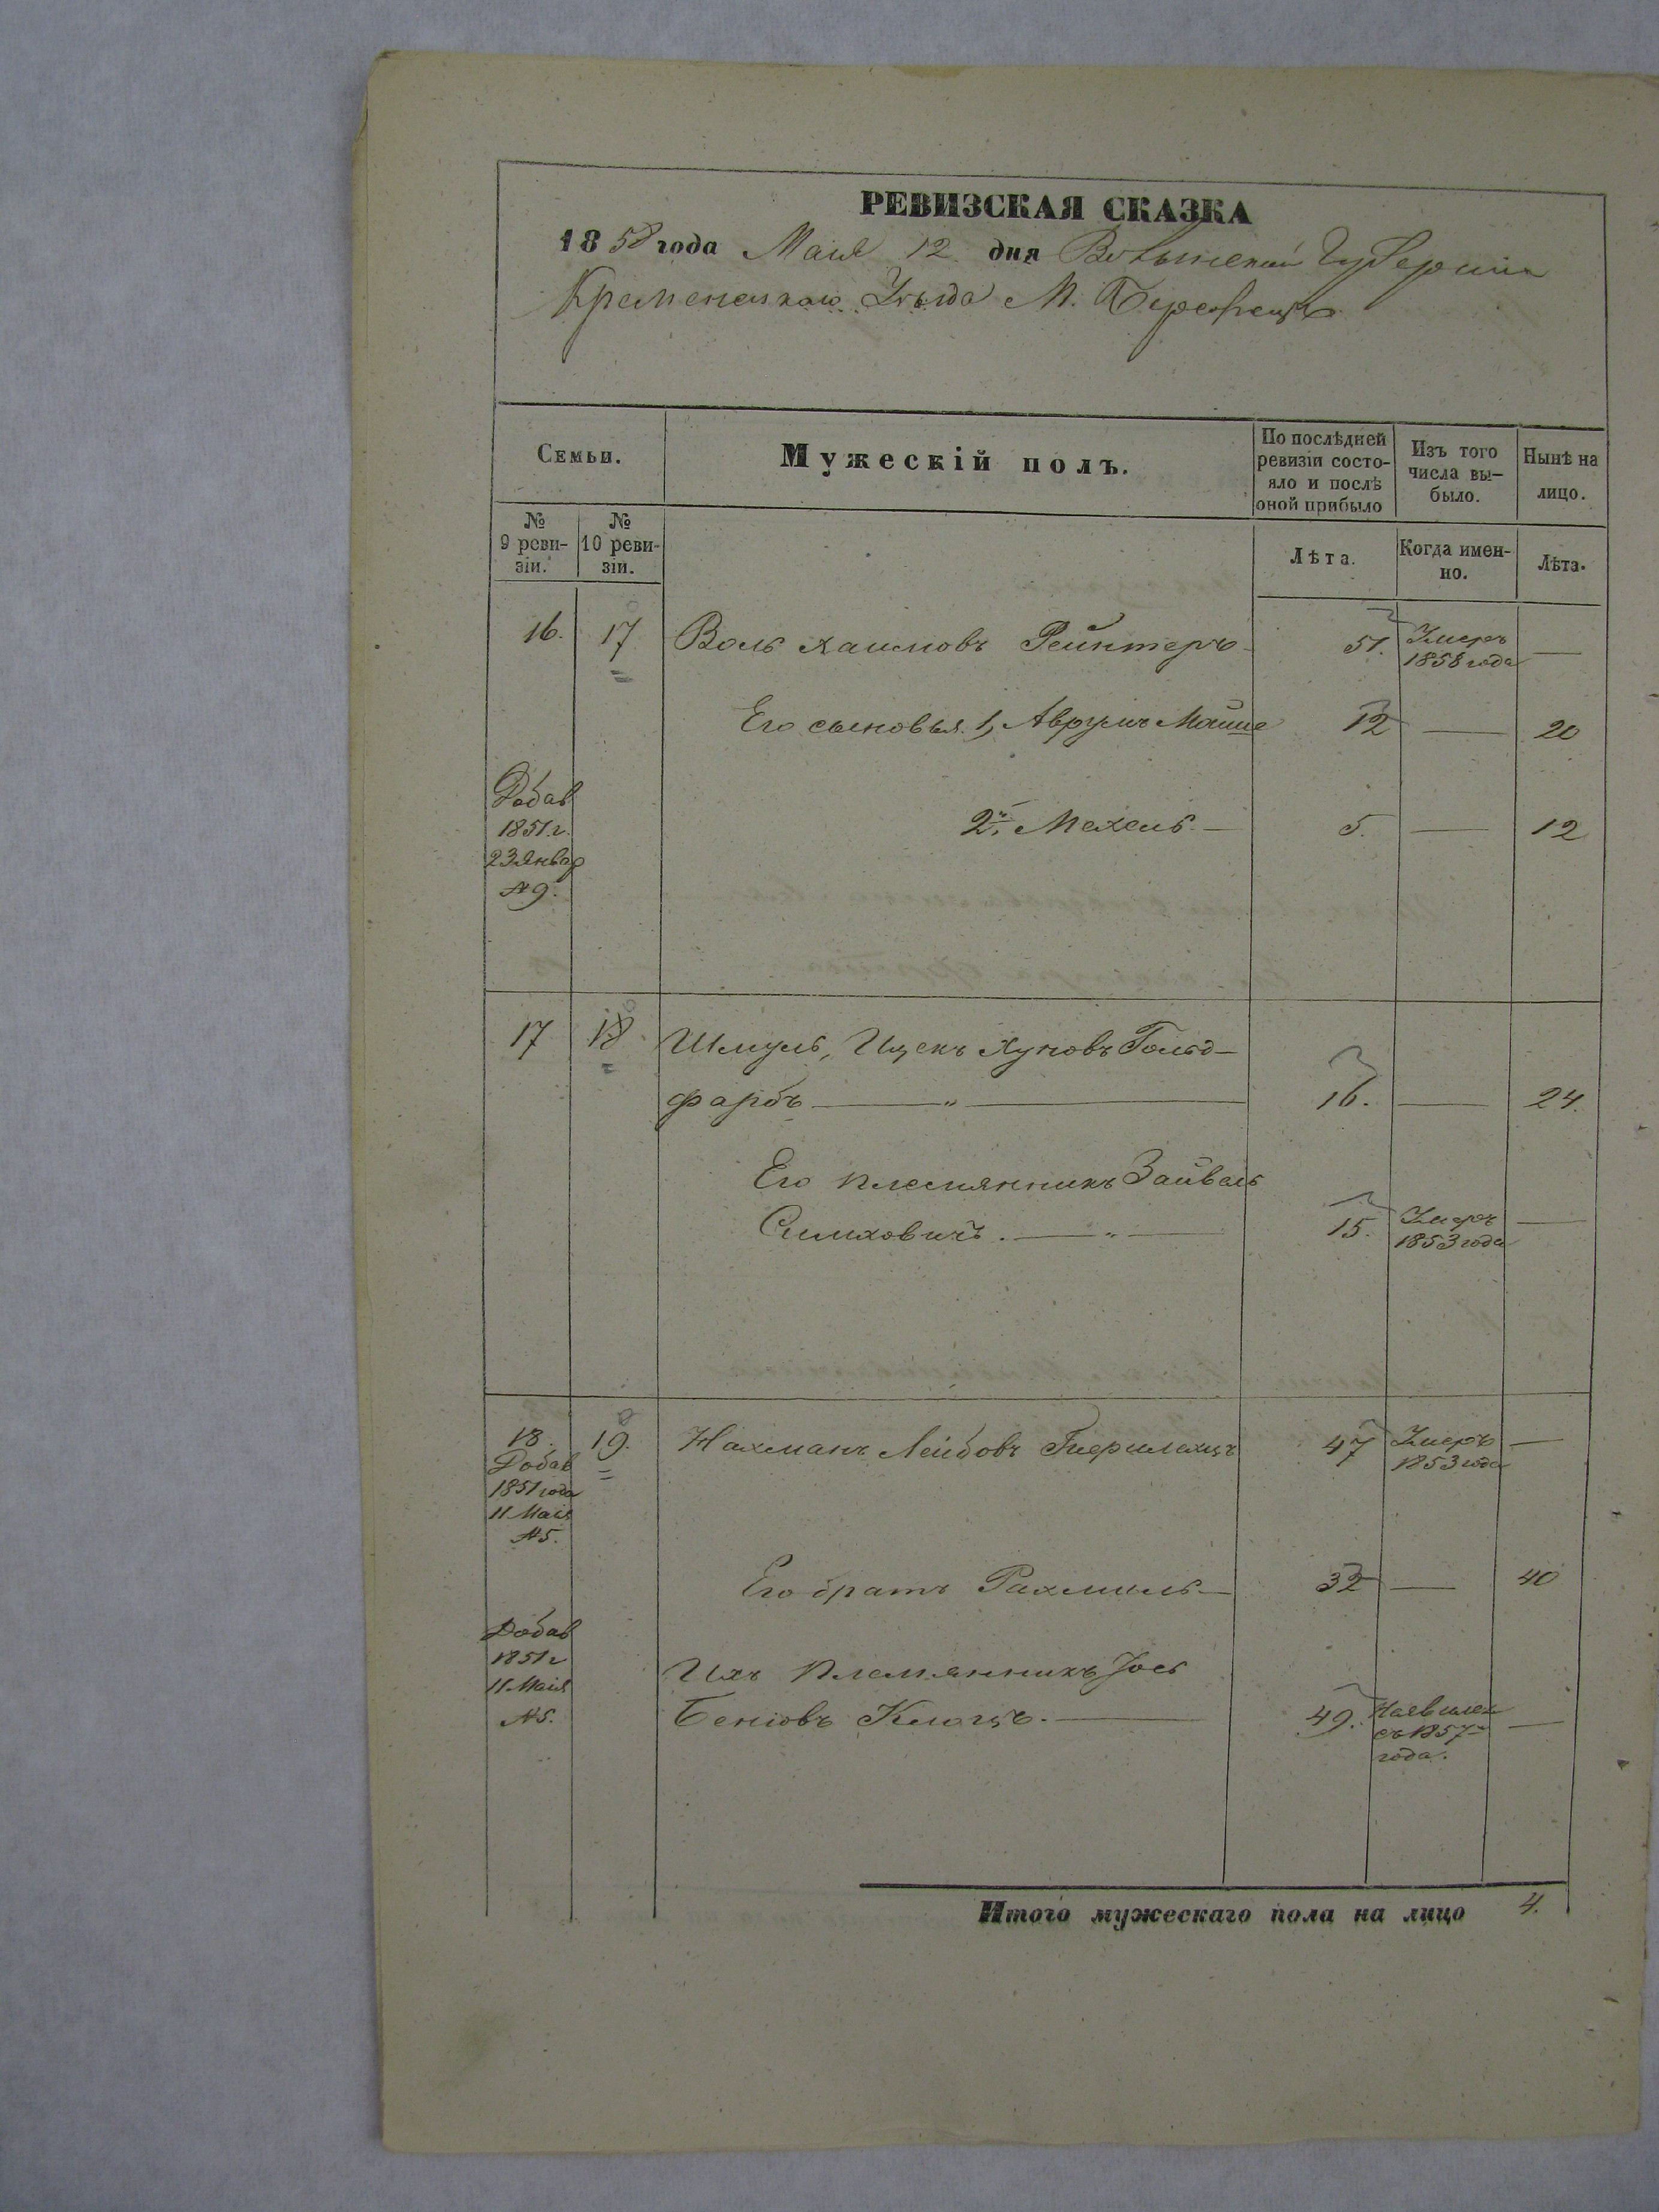 РЕВИЗСКАЯ СКАЗКА
1858 года Маия 12 дня Волынской Губернии
Кременецкаго Уѣзда М. Бережецъ
Семьи.
Мужескій полъ.
По послѣдней ревизіи состо-
яло и послѣ
оной прибыло
Изъ того
числа вы-
было.
Нынѣ на
лицо.
№
9 реви-
зіи.
№
10 реви-
зіи.
Лѣта.
Когда имен-
но.
Лѣта.
16. 17 Воль Хаимовъ Рейнтеръ 51. Умеръ
1858 года —
Его сыновья 1, Аврумъ Мойше 12 — 20
Добав
1851 г.
23 Январ
№ 9.
2й, Мехель — 5. — 12
17 18 Шмуль, Ицекъ Хуновъ Гольд-
фарбъ — „ — 16. — 24.
Его племянникъ Зайвель
Симховичъ. — „ — 15. Умеръ
1853 года —
18. 19. Нахманъ Лейбовъ 47 Умеръ
1853 года —
Добав
1851 года
11 Маия
№ 5.
Его братъ Рахмиль — 32 — 40
Добав
1851 г
11 Маия
№ 5.
Ихъ племянникъ Іось
Беніовъ — 49. съ 1857
года. —
Итого мужескаго пола на лицо 4.